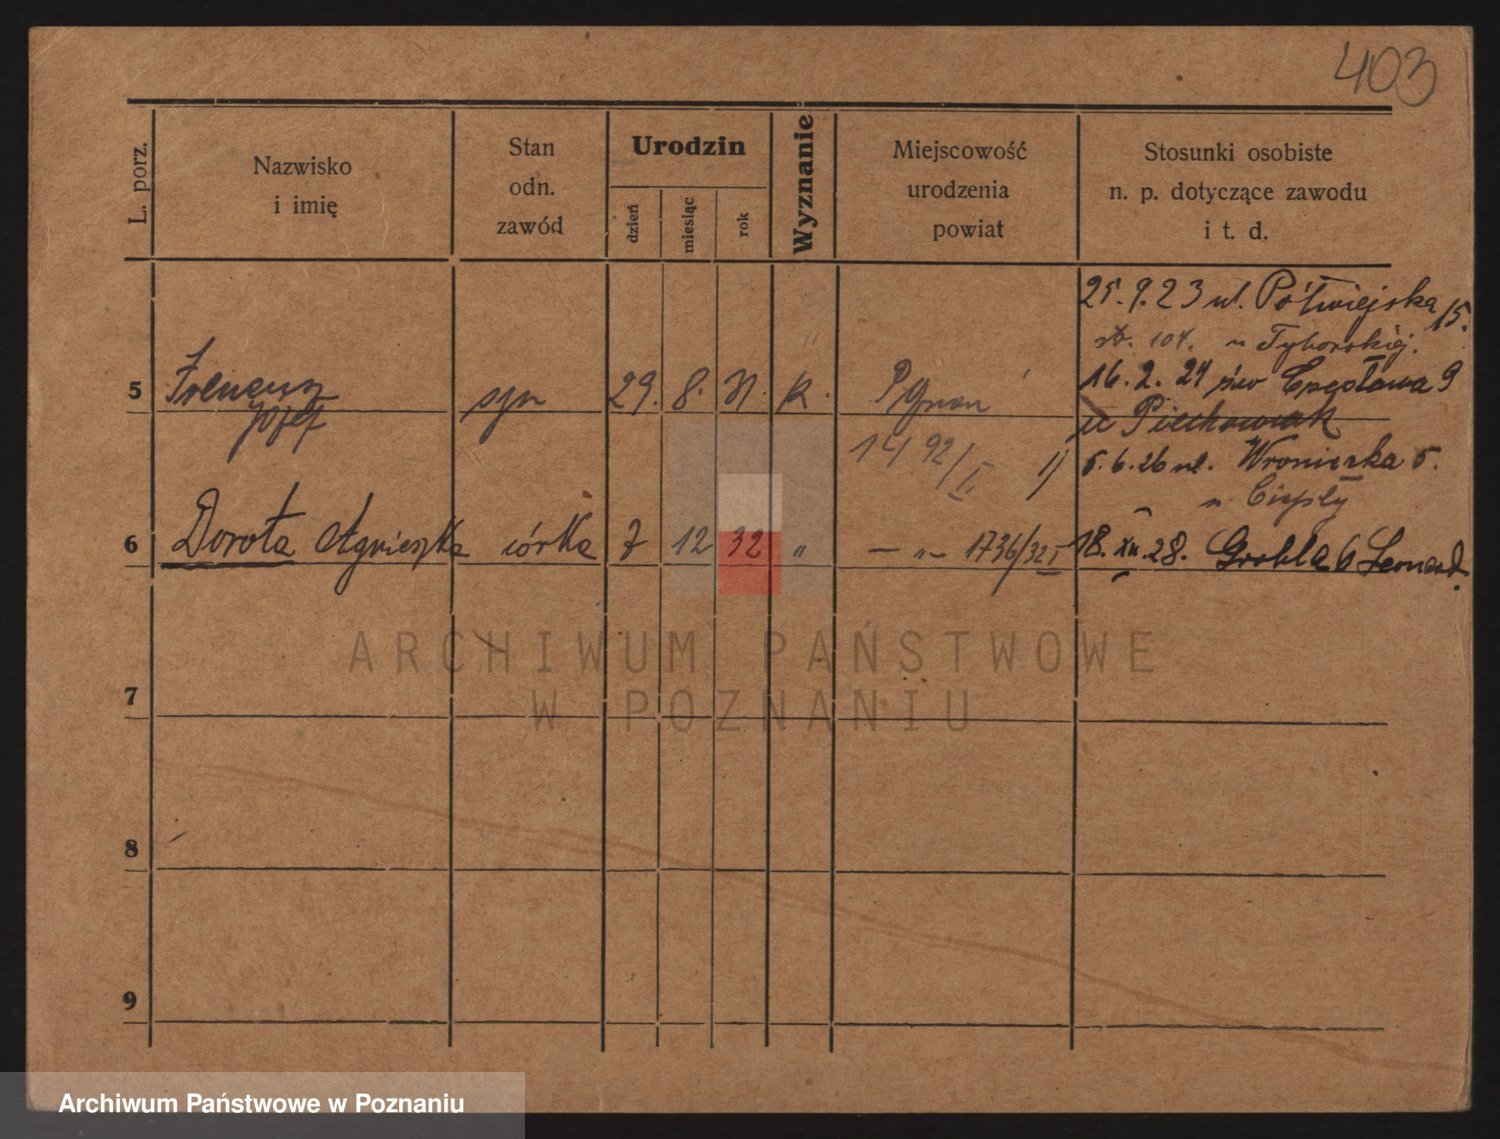 403
L. porz.
Nazwisko
i imię
Stan
odn.
zawód
Urodzin
dzień
miesiąc
rok
Wyznanie
Miejscowość
urodzenia
powiat
Stosunki osobiste
n. p. dotyczące zawodu
i t. d.
25. 9. 23 ul. Półwiejska 15.
16. 2. 24 św Czesława 9
u Piechowiak
5
Ireneusz
Józef
syn
29. 8. k.
14 92/I 1)
5. 6. 26 ul. Wroniecka 5.
u Ciepły
6
Dorota Agnieszka córka 7 12 32 „ — „ — 1736/32 I
18. XII. 28. Grobla 6 Leonard.
7
8
9
ARCHIWUM PAŃSTWOWE
W POZNANIU
Archiwum Państwowe w Poznaniu